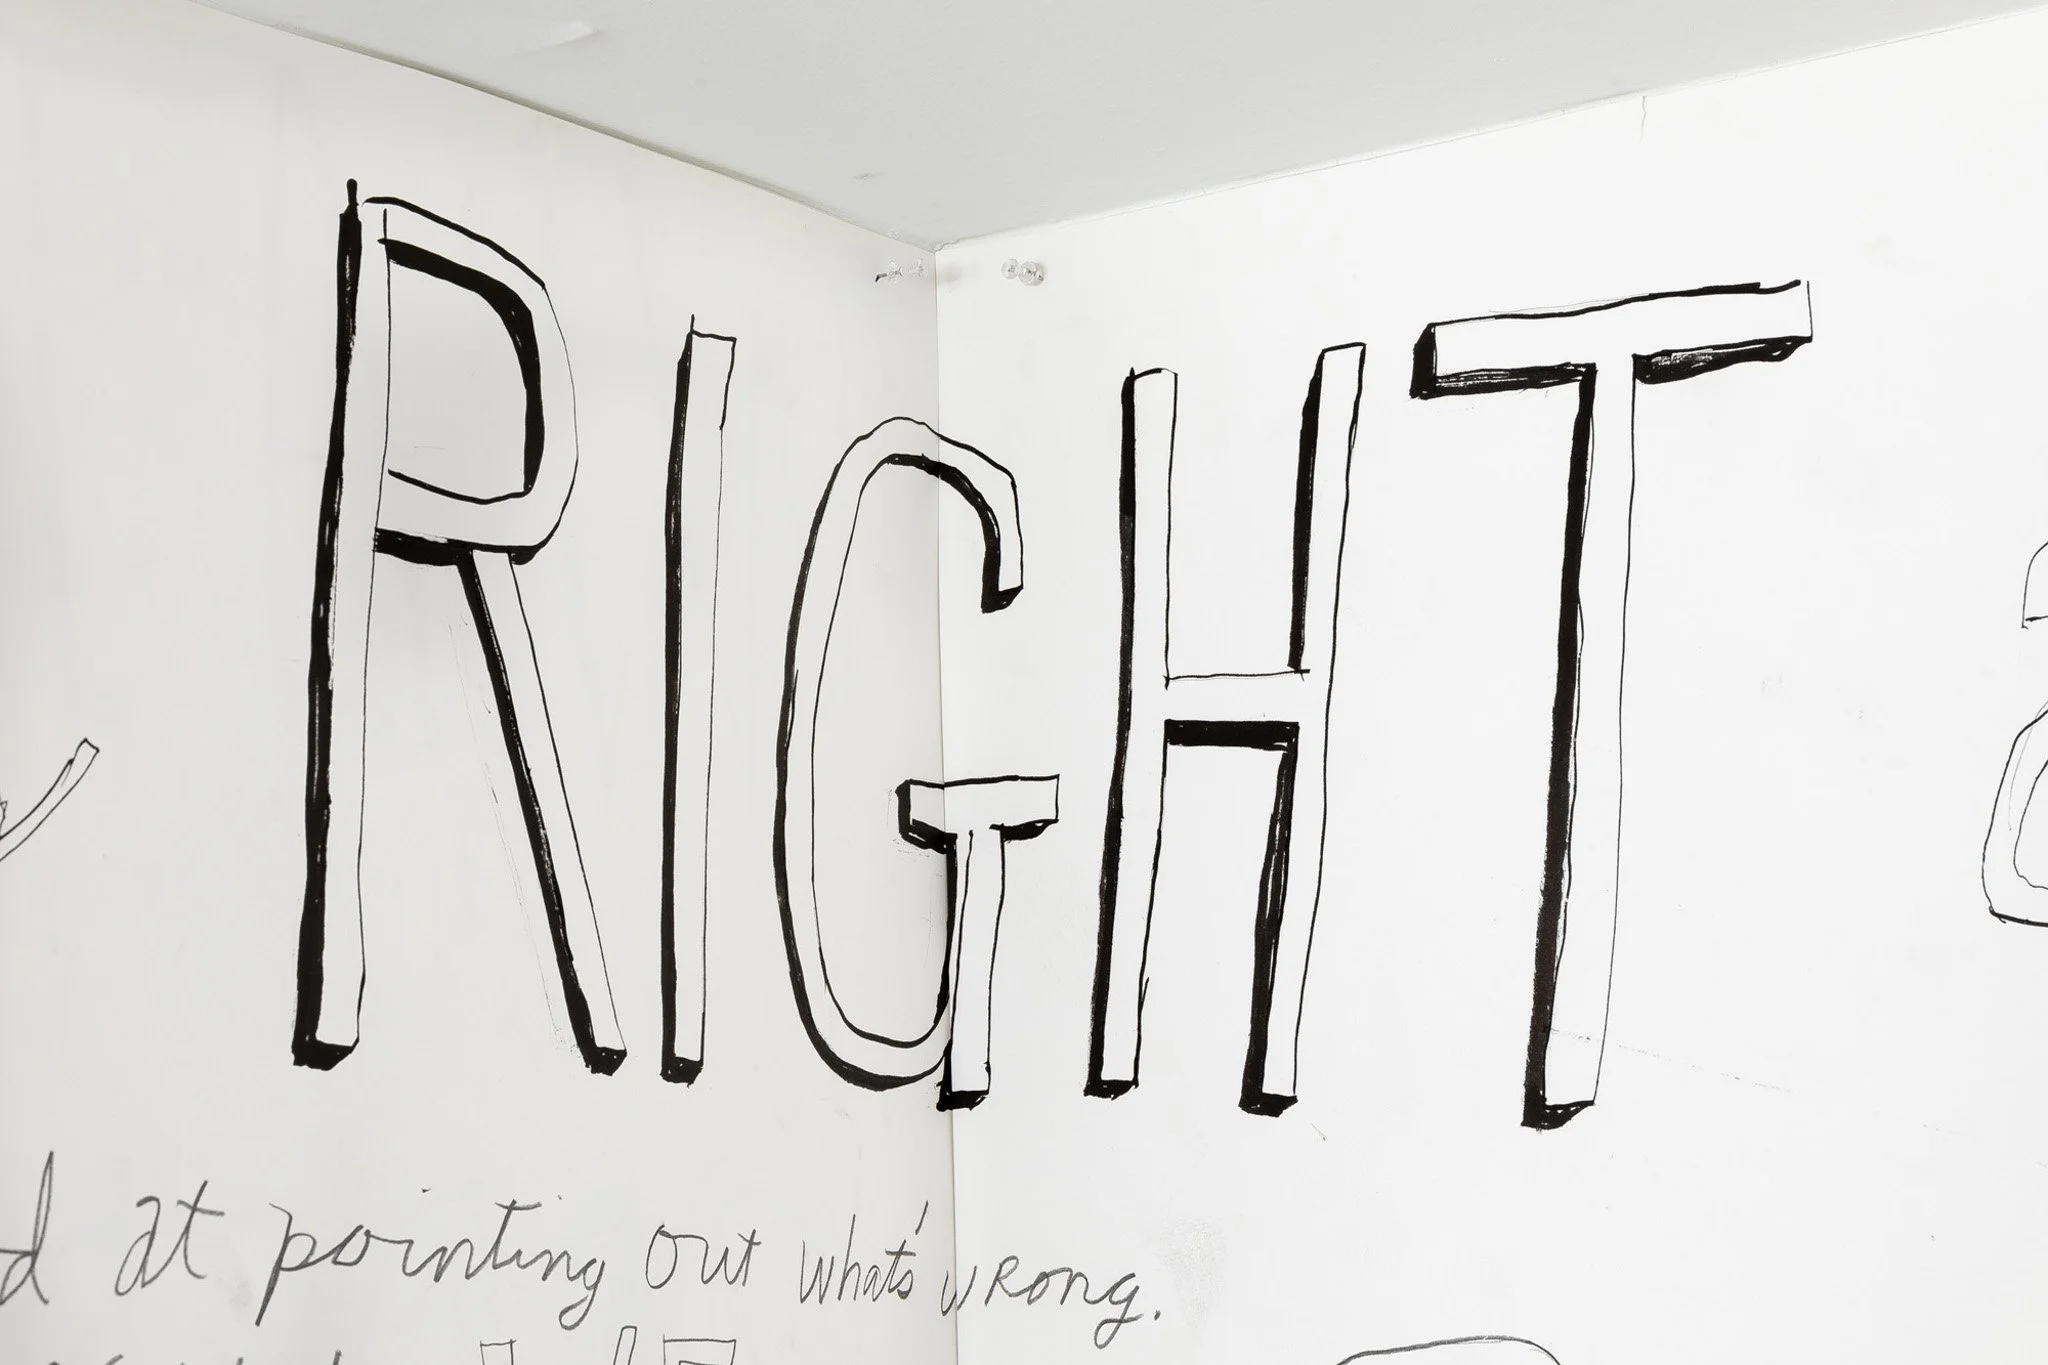 RIGHT
at pointing out what's wrong.